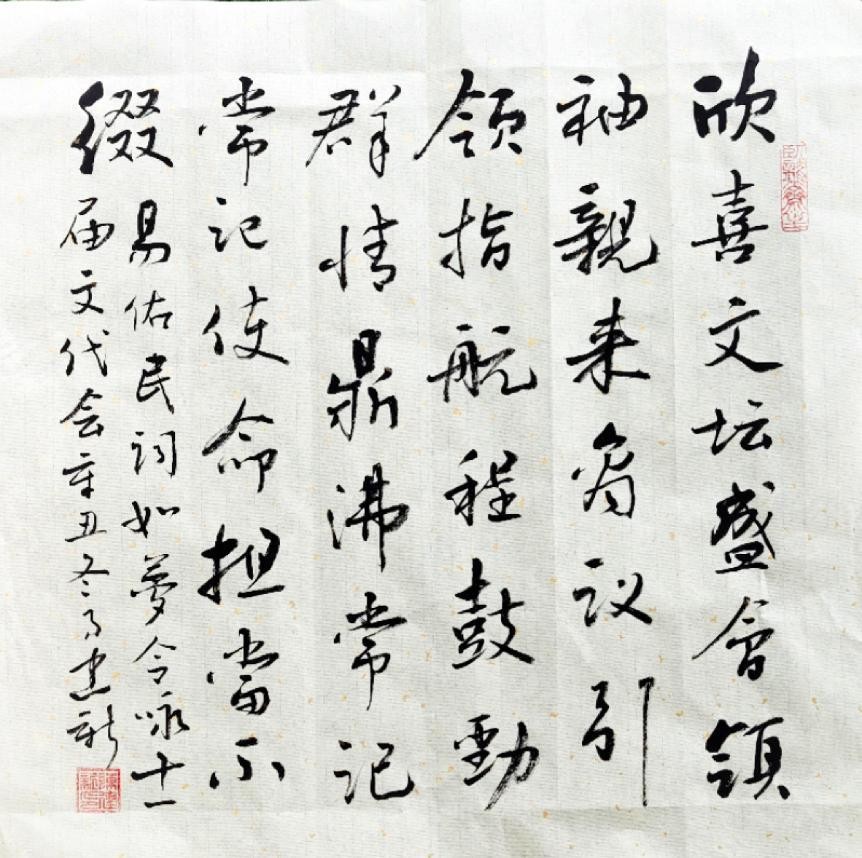 欣喜文坛盛會領
袖親来议引
領指航程鼓勁
群情鼎沸常记
常记使命担當不
缀
易佑民词如夢令咏十一
届文代会辛丑冬建新